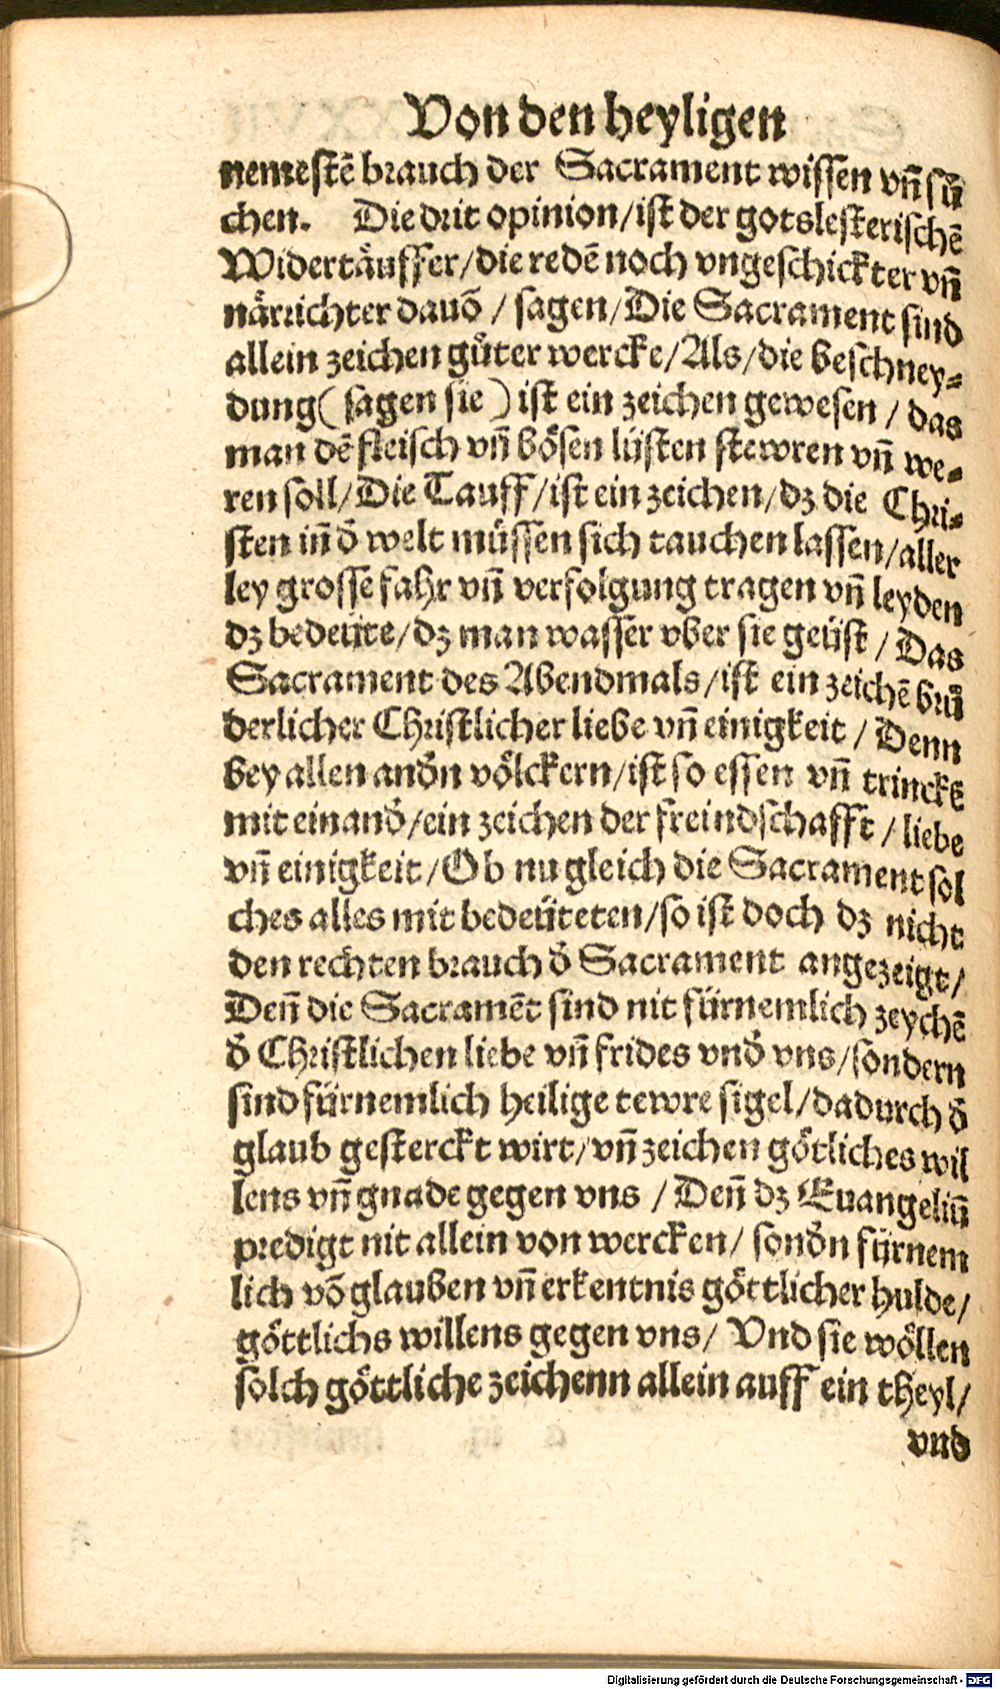 Von den heyligen
nemestē brauch der Sacrament wissen vn̄ sů
chen. Die drit opinion/ist der gotslesterischē
Widertåuffer/die redē noch vngeschickter vn̄
nårrichter dauō / sagen/Die Sacrament sind
allein zeichen gůter wercke/Als/die beschney⸗
dung( sagen sie ) ist ein zeichen gewesen / das
man dē fleisch vn̄ bösen lüsten stewren vn̄ we⸗
ren soll/Die Tauff/ist ein zeichen/dz die Chri⸗
sten in̄ d̓ welt müssen sich tauchen lassen/aller
ley grosse fahr vn̄ verfolgung tragen vn̄ leyden
dz bedeüte/dz man wasser vber sie geüst / Das
Sacrament des Abendmals/ist ein zeichē brů
derlicher Christlicher liebe vn̄ einigkeit / Denn
bey allen and̓n völckern/ist so essen vn̄ trinckē
mit einand̓/ein zeichen der freindschafft / liebe
vn̄ einigkeit/Ob nu gleich die Sacrament sol
ches alles mit bedeüteten/so ist doch dz nicht
den rechten brauch d̓ Sacrament angezeigt/
Den̄ die Sacramēt sind nit fürnemlich zeychē
d̓ Christlichen liebe vn̄ frides vnd̓ vns/sondern
sind fürnemlich heilige tewre sigel/dadurch d̓
glaub gesterckt wirt/vn̄ zeichen götliches wil
lens vn̄ gnade gegen vns / Den̄ dz Euangeliū
predigt nit allein von wercken/ sond̓n fürnem
lich vō glauben vn̄ erkentnis göttlicher hulde/
göttlichs willens gegen vns/ Vnd sie wöllen
solch göttliche zeichenn allein auff ein theyl/
vnd
Digitalisierung gefördert durch die Deutsche Forschungsgemeinschaft - DFG